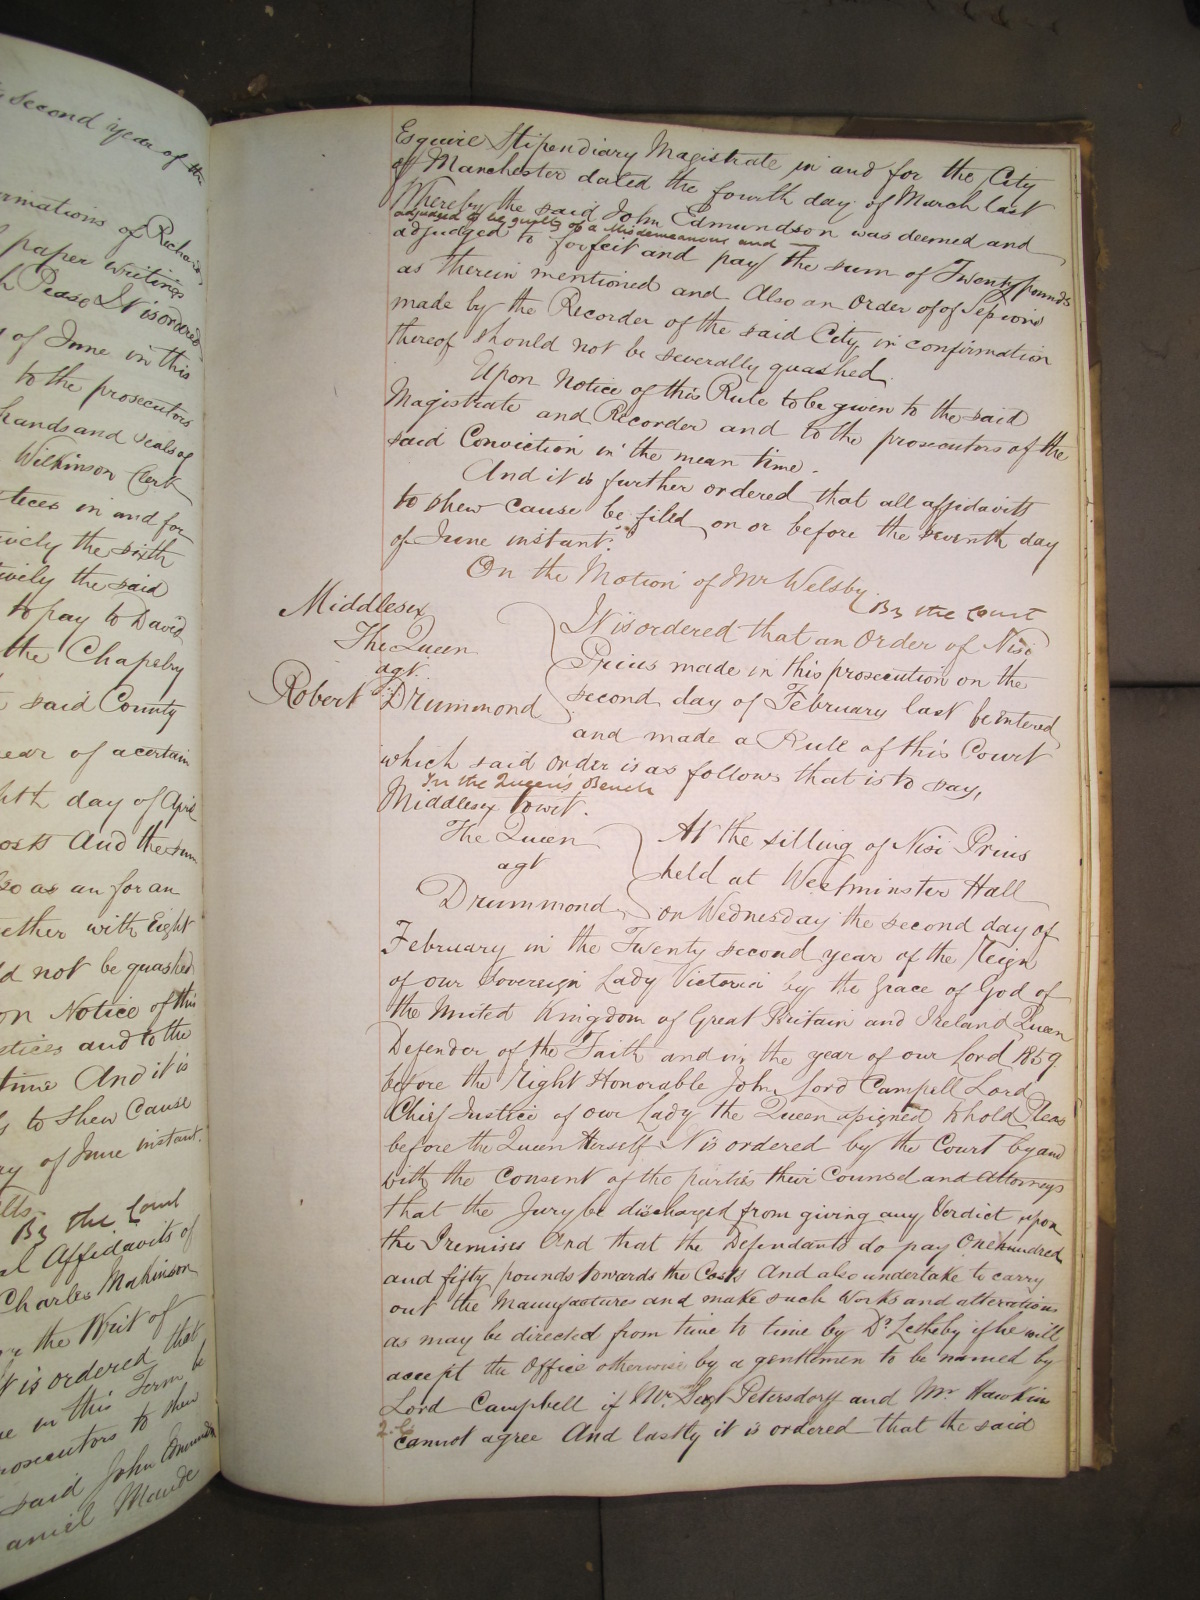 second year of the
rmations of Richard
paper writings
Pease It is ordered
of June in this
to the prosecutors
hands and seals of
Wilkinson Clerk
tices in and for
ively the sixth
tively the said
to pay to David
the Chapelry
said County
year of a certain
hth day of April
osts And the sum
so as an for an
ether with Eight
d not be quashed
on Notice of this
stices and to the
time And it is
to shew Cause
ry of June instant.
By the Court
al Affidavits of
Charles Makinson
the Writ of
It is ordered that
e in this Term be
rosecutors to shew
said John Edmundson
aniel Maude
Esquire Stipendiary Magistrate in and for the City
of Manchester dated the fourth day of March last
Whereby the said John Edmundson was deemed and
adjudged to be guilty of a Misdemeanour and
adjudged to forfeit and pay the sum of Twenty pounds
as therein mentioned and Also an Order of of Sessions
made by the Recorder of the said City in confirmation
thereof should not be severally quashed.
Upon Notice of this Rule to be given to the said
Magistrate and Recorder and to the prosecutors of the
said Conviction in the mean time.
And it is further ordered that all affidavits
to shew cause be filed on or before the seventh day
of June instant.
On the Motion of Mr Welsby.
By the Court
Middlesex
The Queen
agt
Robert Drummond
It is ordered that an Order of Nisi
Prius made in this prosecution on the
second day of February last be entered
and made a Rule of this Court
which said order is as follows that is to say,
In the Queen's Bench
Middlesex to wit.
The Queen
agt
Drummond
At the sitting of Nisi Prius
held at Westminster Hall
on Wednesday the second day of
February in the Twenty second year of the Reign
of our Sovereign Lady Victoria by the Grace of God of
the United Kingdom of Great Britain and Ireland Queen
Defender of the Faith and in the year of our Lord 1859.
before the Right Honorable John Lord Campell Lord
Chief Justice of our Lady the Queen asigned to hold Pleas
before the Queen Herself It is ordered by the Court by and
with the consent of the parties their Counsel and Attorneys
that the Jury be discharged from giving any Verdict upon
the Premises And that the Defendants do pay One hundred
and fifty pounds towards the Costs And also undertake to carry
out the Manufactures and make such Works and alterations
as may be directed from time to time by Dr Letheby if he will
accept the Office otherwise by a gentlemen to be named by
Lord Campbell if Mr. Sergt Petersdorff and Mr Hawkins
cannot agree And lastly it is ordered that the said